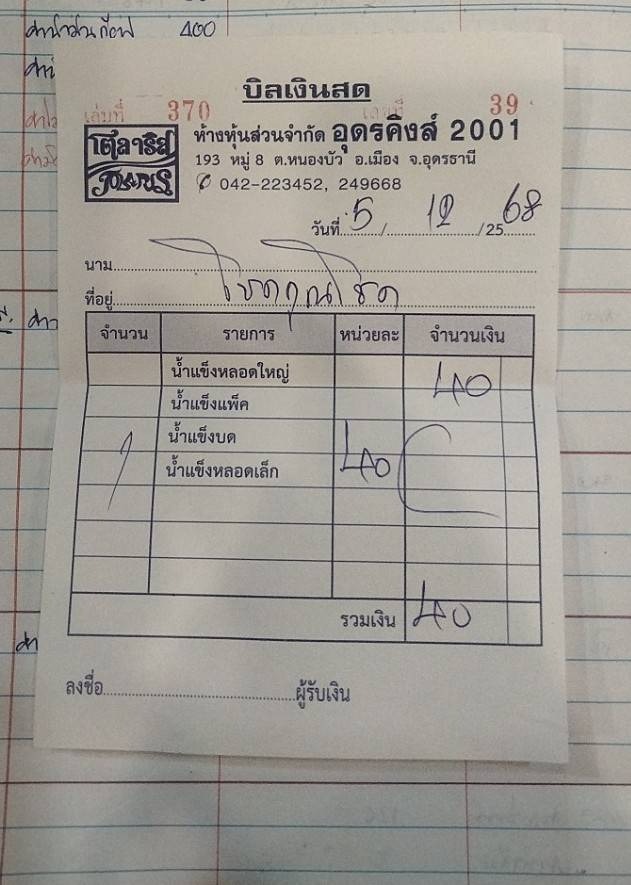 400
บิลเงินสด
เล่มที่ 370 เลขที่ 39
ห้างหุ้นส่วนจำกัด อุดรคิงส์ 2001
193 หมู่ 8 ต.หนองบัว อ.เมือง จ.อุดรธานี
042-223452, 249668
วันที่ 5 / 12 /2568
นาม
ที่อยู่
จำนวน รายการ หน่วยละ จำนวนเงิน
น้ำแข็งหลอดใหญ่ 40
น้ำแข็งแพ็ค
น้ำแข็งบด
1 น้ำแข็งหลอดเล็ก 40
รวมเงิน 40
ลงชื่อ ผู้รับเงิน